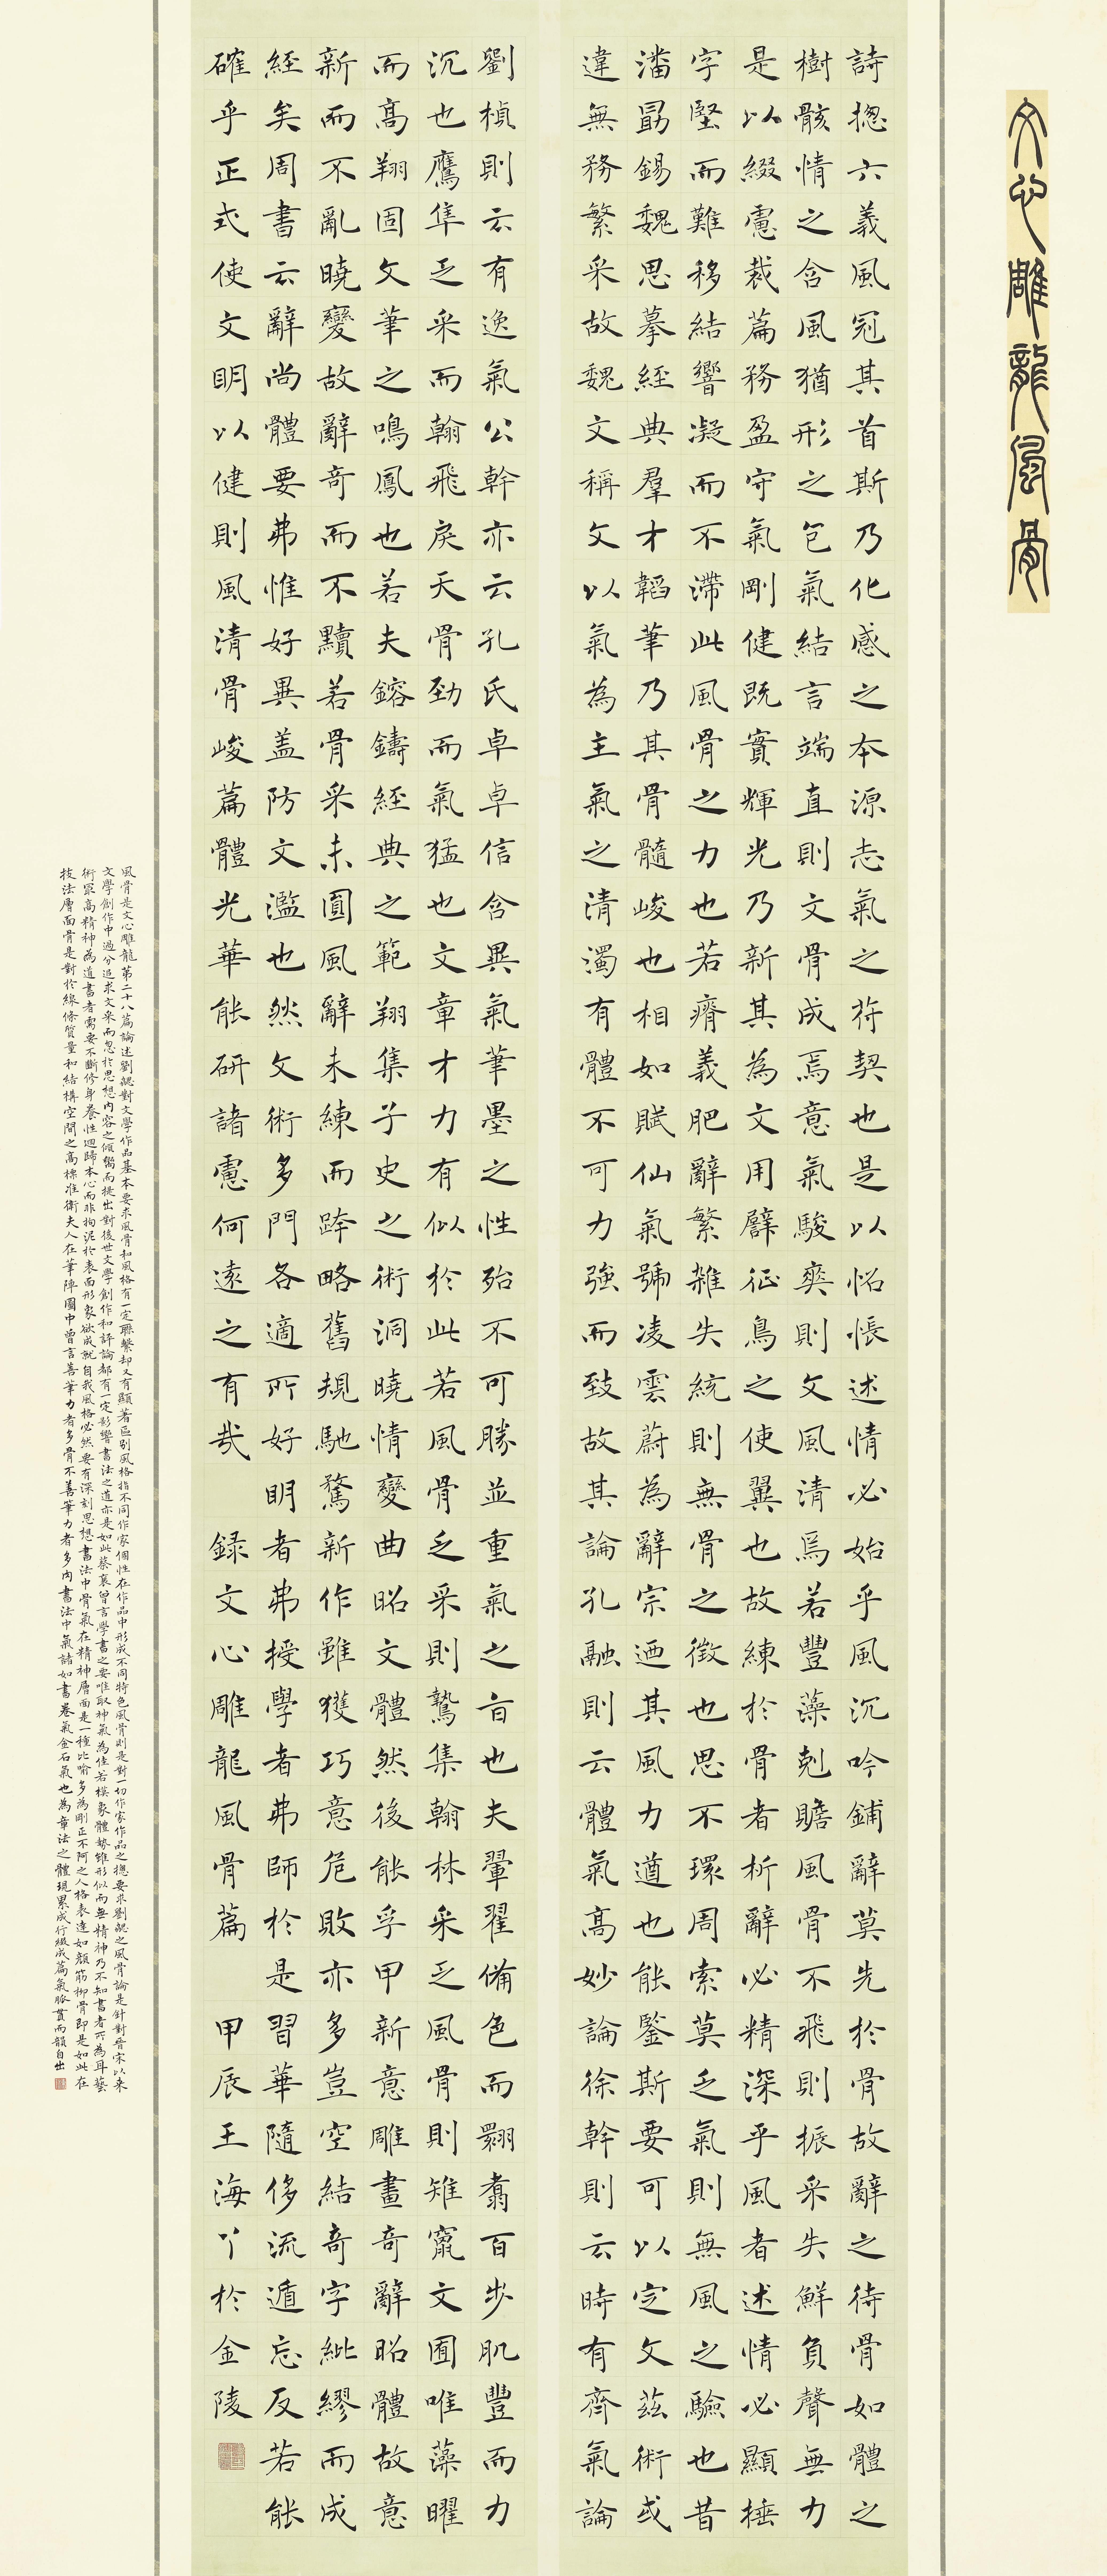 文心雕龍風骨
詩揔六義風冠其首斯乃化感之本源志氣之符契也是以怊悵述情必始乎風沉吟鋪辭莫先於骨故辭之待骨如體之
樹骸情之含風猶形之包氣結言端直則文骨成焉意氣駿爽則文風清焉若豐藻剋贍風骨不飛則振采失鮮負聲無力
是以綴慮裁篇務盈守氣剛健既實輝光乃新其為文用譬征鳥之使翼也故練於骨者析辭必精深乎風者述情必顯捶
字堅而難移結響凝而不滯此風骨之力也若瘠義肥辭繁雜失統則無骨之徵也思不環周索莫乏氣則無風之驗也昔
潘勗錫魏思摹經典羣才韜筆乃其骨髓峻也相如賦仙氣號凌雲蔚為辭宗迺其風力遒也能鑒斯要可以定文茲術或
違無務繁采故魏文稱文以氣為主氣之清濁有體不可力強而致故其論孔融則云體氣高妙論徐幹則云時有齊氣論
劉楨則云有逸氣公幹亦云孔氏卓卓信含異氣筆墨之性殆不可勝並重氣之旨也夫翬翟備色而翾翥百步肌豐而力
沉也鷹隼乏采而翰飛戾天骨勁而氣猛也文章才力有似於此若風骨乏采則鷙集翰林采乏風骨則雉竄文囿唯藻曜
而高翔固文筆之鳴鳳也若夫鎔鑄經典之範翔集子史之術洞曉情變曲昭文體然後能孚甲新意雕畫奇辭昭體故意
新而不亂曉變故辭奇而不黷若骨采未圓風辭未練而跨略舊規馳騖新作雖獲巧意危敗亦多豈空結奇字紕繆而成
經矣周書云辭尚體要弗惟好異蓋防文濫也然文術多門各適所好明者弗授學者弗師於是習華隨侈流遁忘反若能
確乎正式使文明以健則風清骨峻篇體光華能研諸慮何遠之有哉 錄文心雕龍風骨篇 甲辰王海丫於金陵
風骨是文心雕龍第二十八篇論述劉勰對文學作品基本要求風骨和風格有一定聯繫却又有顯著區別風格指不同作家個性在作品中形成不同特色風骨則是對一切作家作品之揔要求劉勰之風骨論是針對晉宋以來
文學創作中過分追求文采而忽於思想內容之傾嚮而提出對後世文學創作和評論都有一定影響書法之道亦是如此蔡襄曾言學書之要唯取神氣為佳若模象體勢雖形似而無精神乃不知書者所為耳藝
術最高精神為道書者需要不斷修身養性迴歸本心而非拘泥於表面形象欲成就自我風格必然要有深刻思想書法中骨氣在精神層面是一種比喻多為剛正不阿之人格表達如顏筋柳骨即是如此在
技法層面骨是對於線條質量和結構空間之高標准衛夫人在筆陣圖中曾言善筆力者多骨不善筆力者多肉書法中氣諸如書卷氣金石氣也為章法之體現累成行綴成篇氣脈貫而韻自出